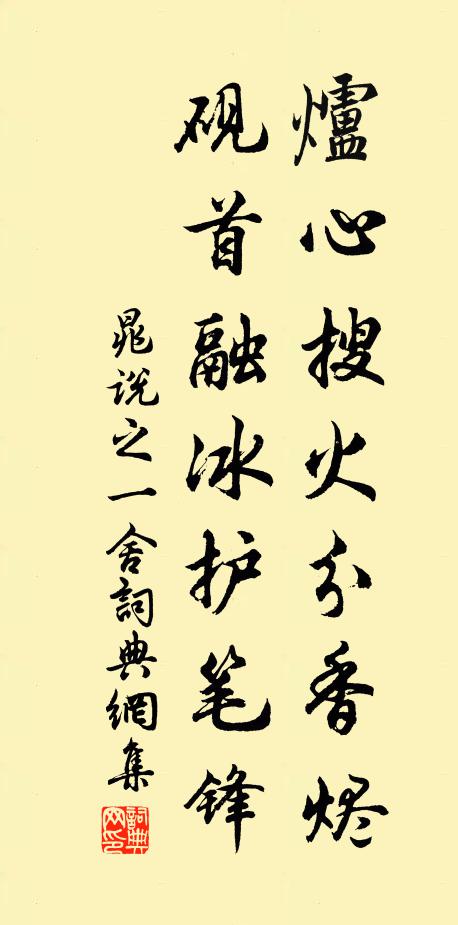 爐心搜火分香烬
砚首融冰护笔锋
晁说之一舍詞典網集
詞典网印